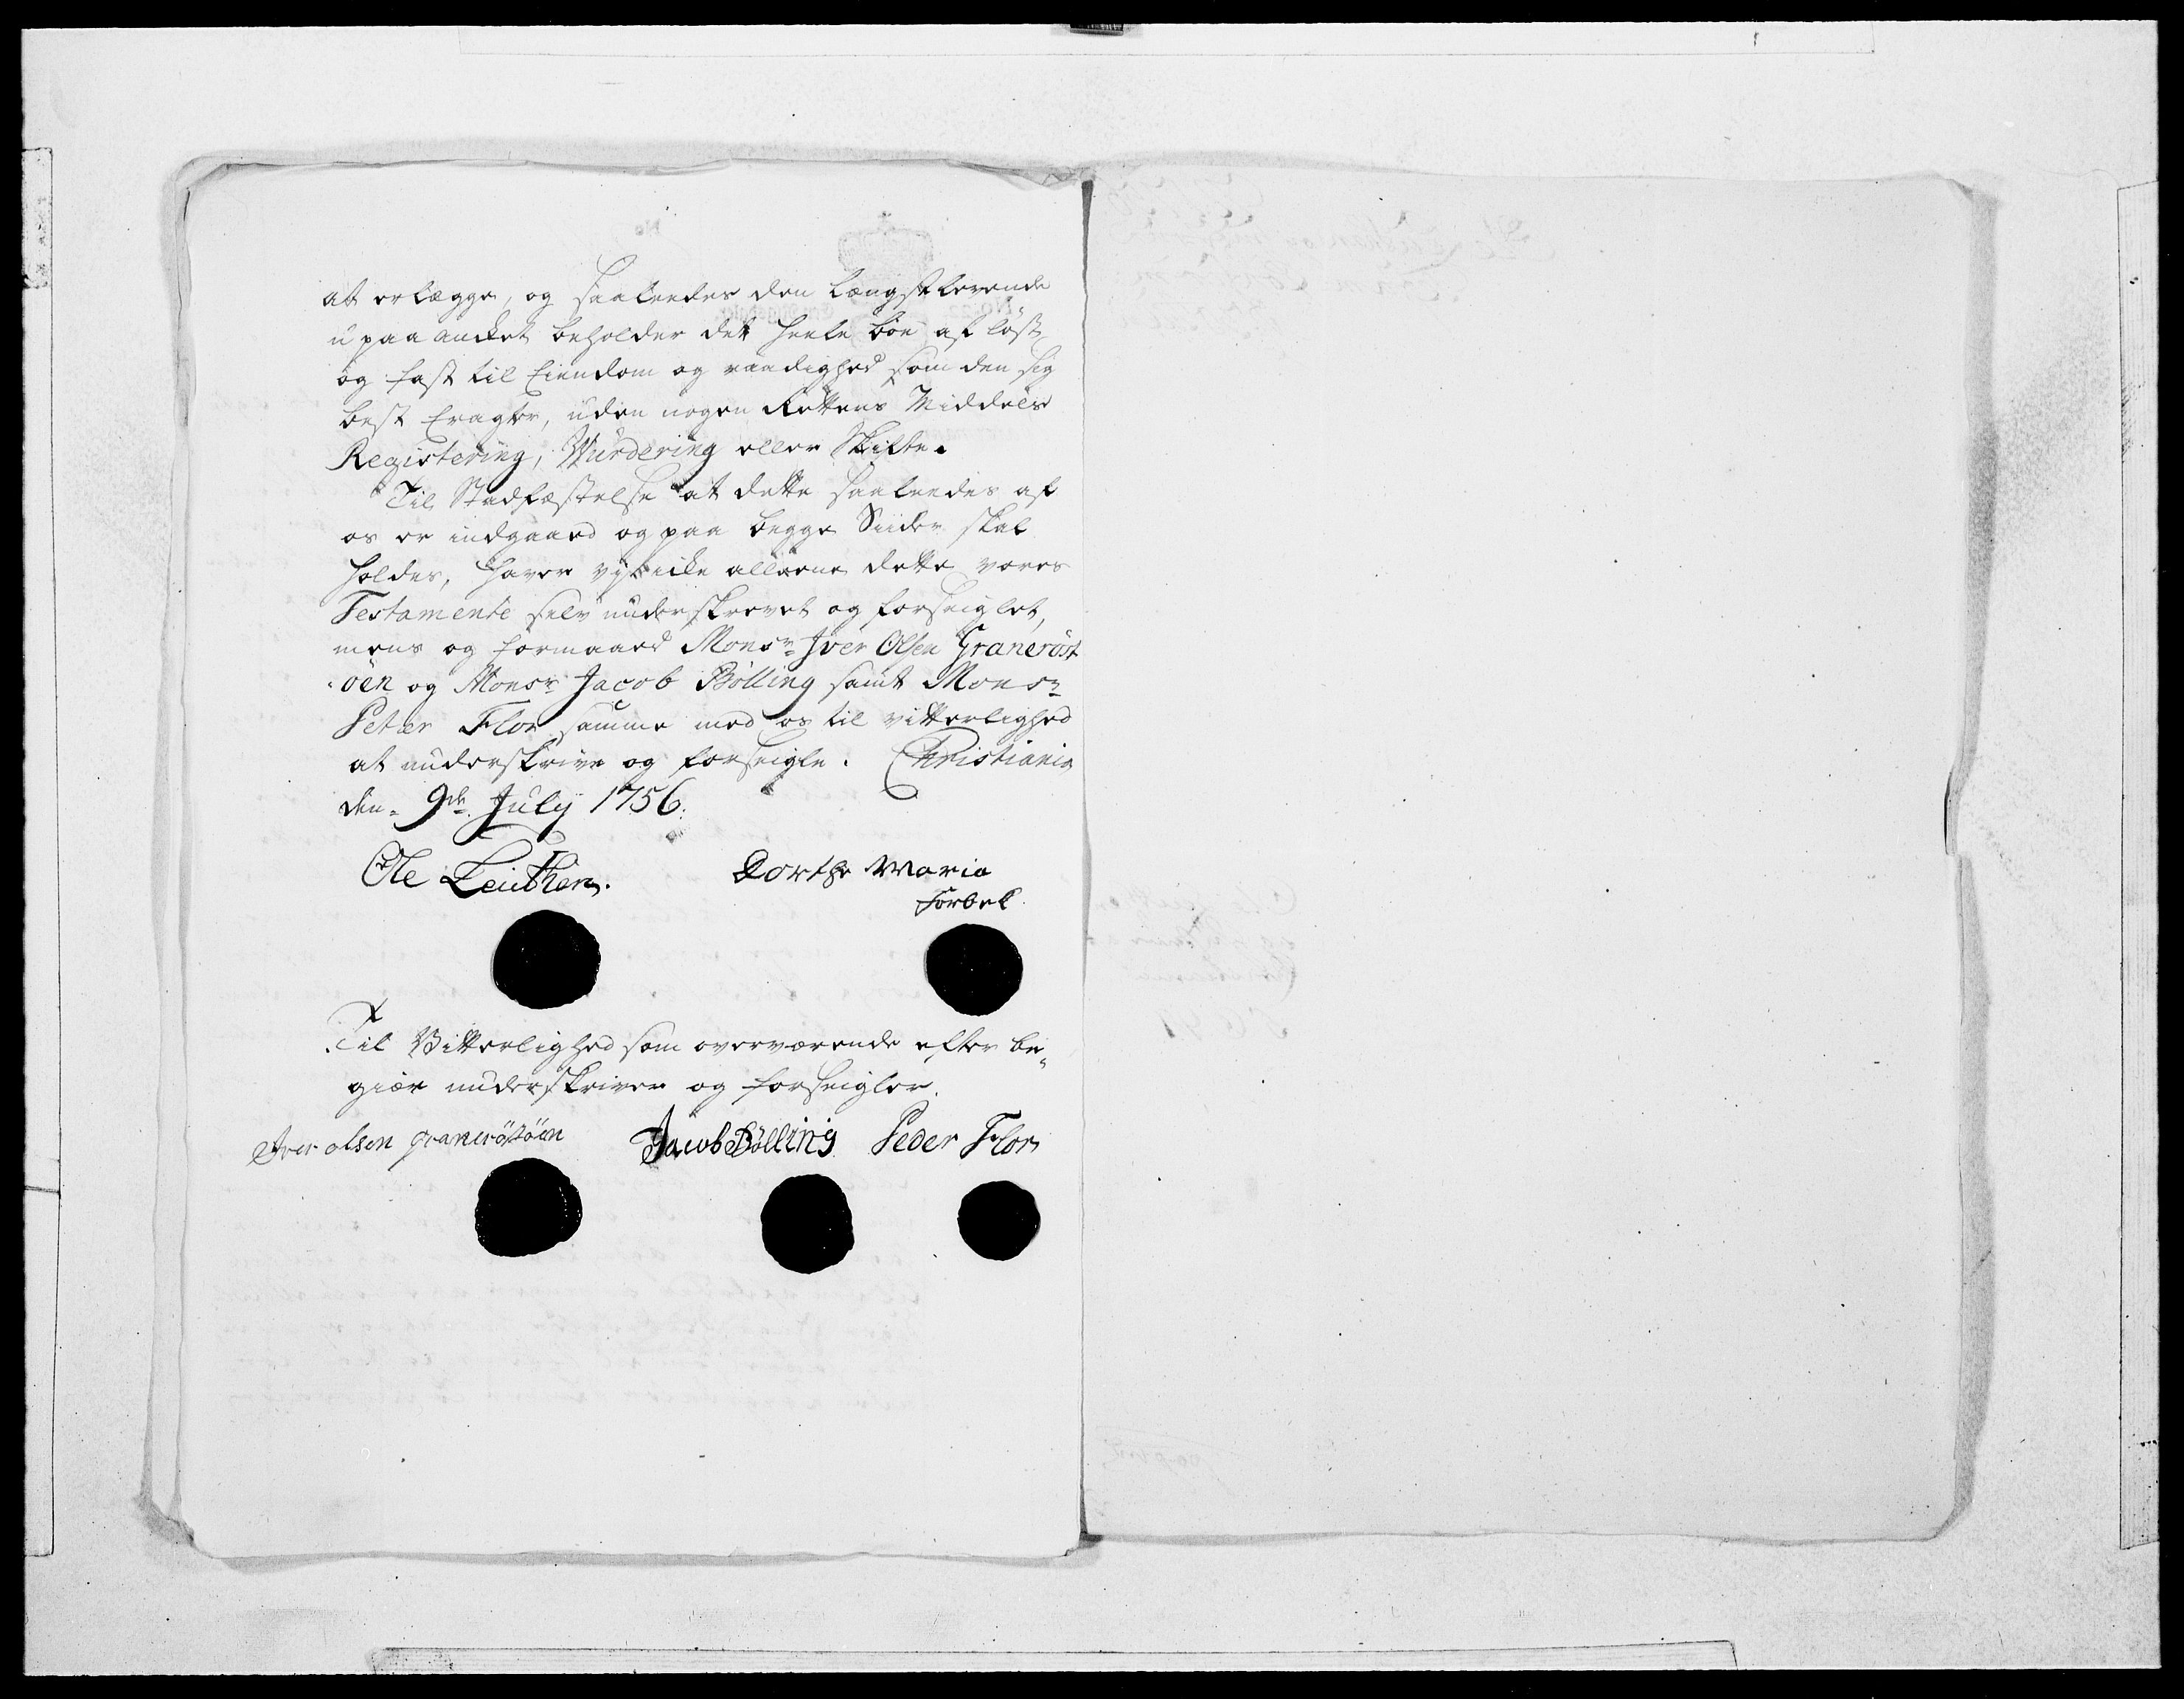 at erlægge, og saaleedes den Længstlevende
upaaancket beholder det heele boe af löst
og fast til Eiendom og raadighed som den sig
best Eragter, uden nogen Rettens Middels
Registering, Wurdering eller Skifte.
Til Stadfæstelse at dette saaleedes af
os er indgaaed og paa begge Siider skal
holdes, haver vj icke alleene dette vores
Testamente selv underskrevet og forseiglet,
mens og formaaed Monsr Iver Olsen Graneröst
öen og Monsr Jacob Bölling samt Monsr
Peter Flor samme med os til vitterlighed
at underskrive og forseigle. Christiania
den 9de July 1756.
Ole Leuthen. Dorthe Maria
Forbek
Til Vitterlighed som overværende efter be-
giær underskriver og forseigler.
Iver olsen graneröstöen Jacob Bölling Peder Flor